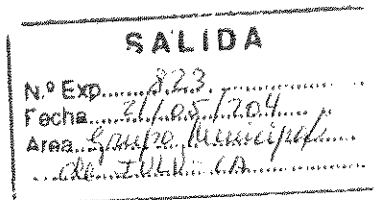 SALIDA
N.º Exp. 823
Fecha 21/05/204
Area Grupo Municipal
de IULV-CA